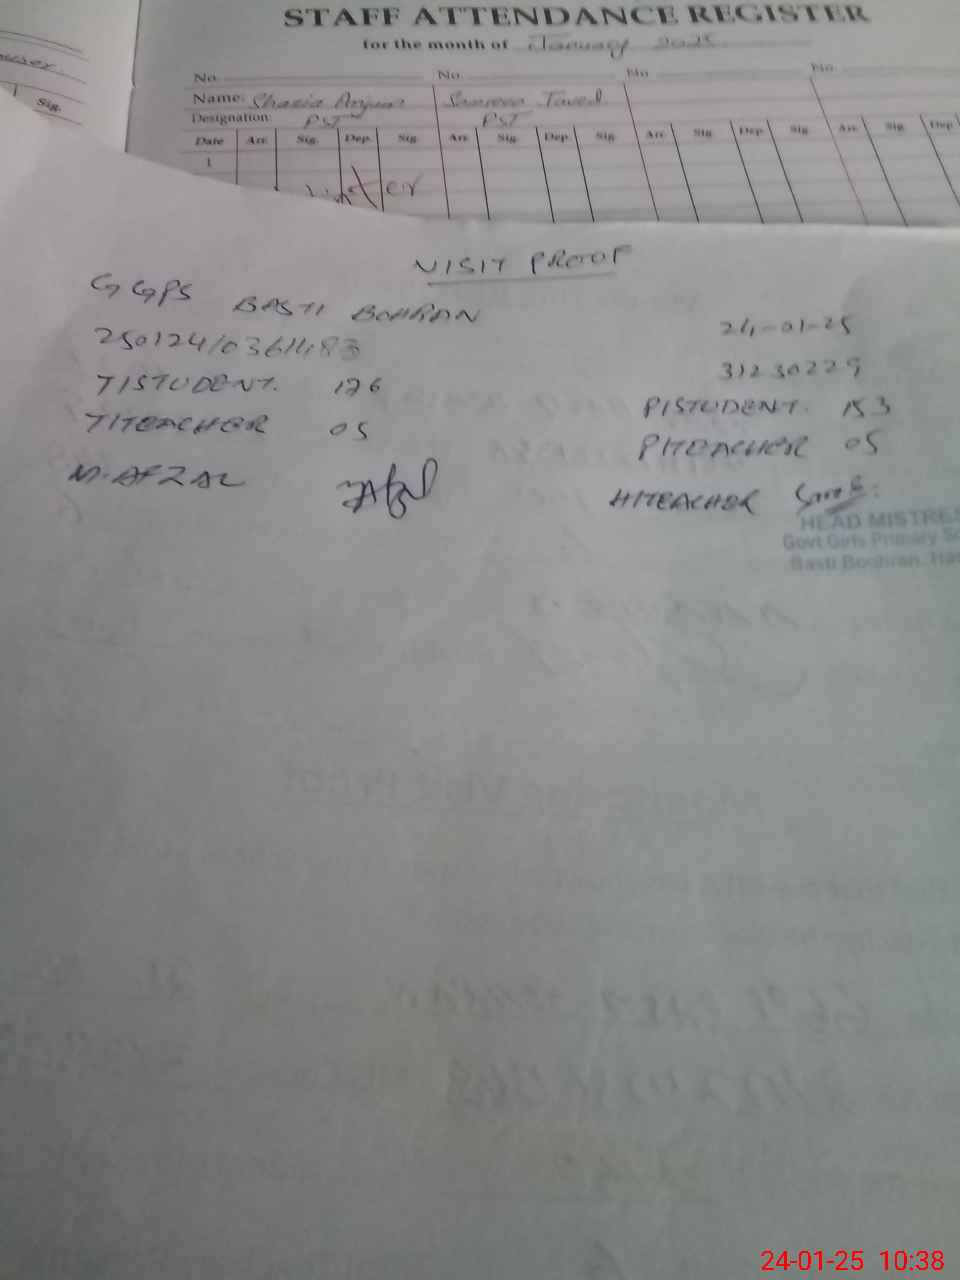 STAFF ATTENDANCE REGISTER
for the month of January 2025
No. No. No. No.
Sig.
Name: Shazia Anjum
Designation PST PST
Date Arr. Sig. Dep. Sig. Arr. Sig. Dep Sig Arr. Sig. Dep Sig. Arr. Sig. Dep
1
VISIT PROOF
GGPS BASTI BOHRAN
24-01-25
250124/0361483
31230229
T/STUDENT. 176
P/STUDENT. 153
T/TEACHER 05
P/TEACHER 05
M. AFZAL
H/TEACHER
HEAD MISTRES
Govt Girls Primary Sc
Basti Boohran,
24-01-25 10:38